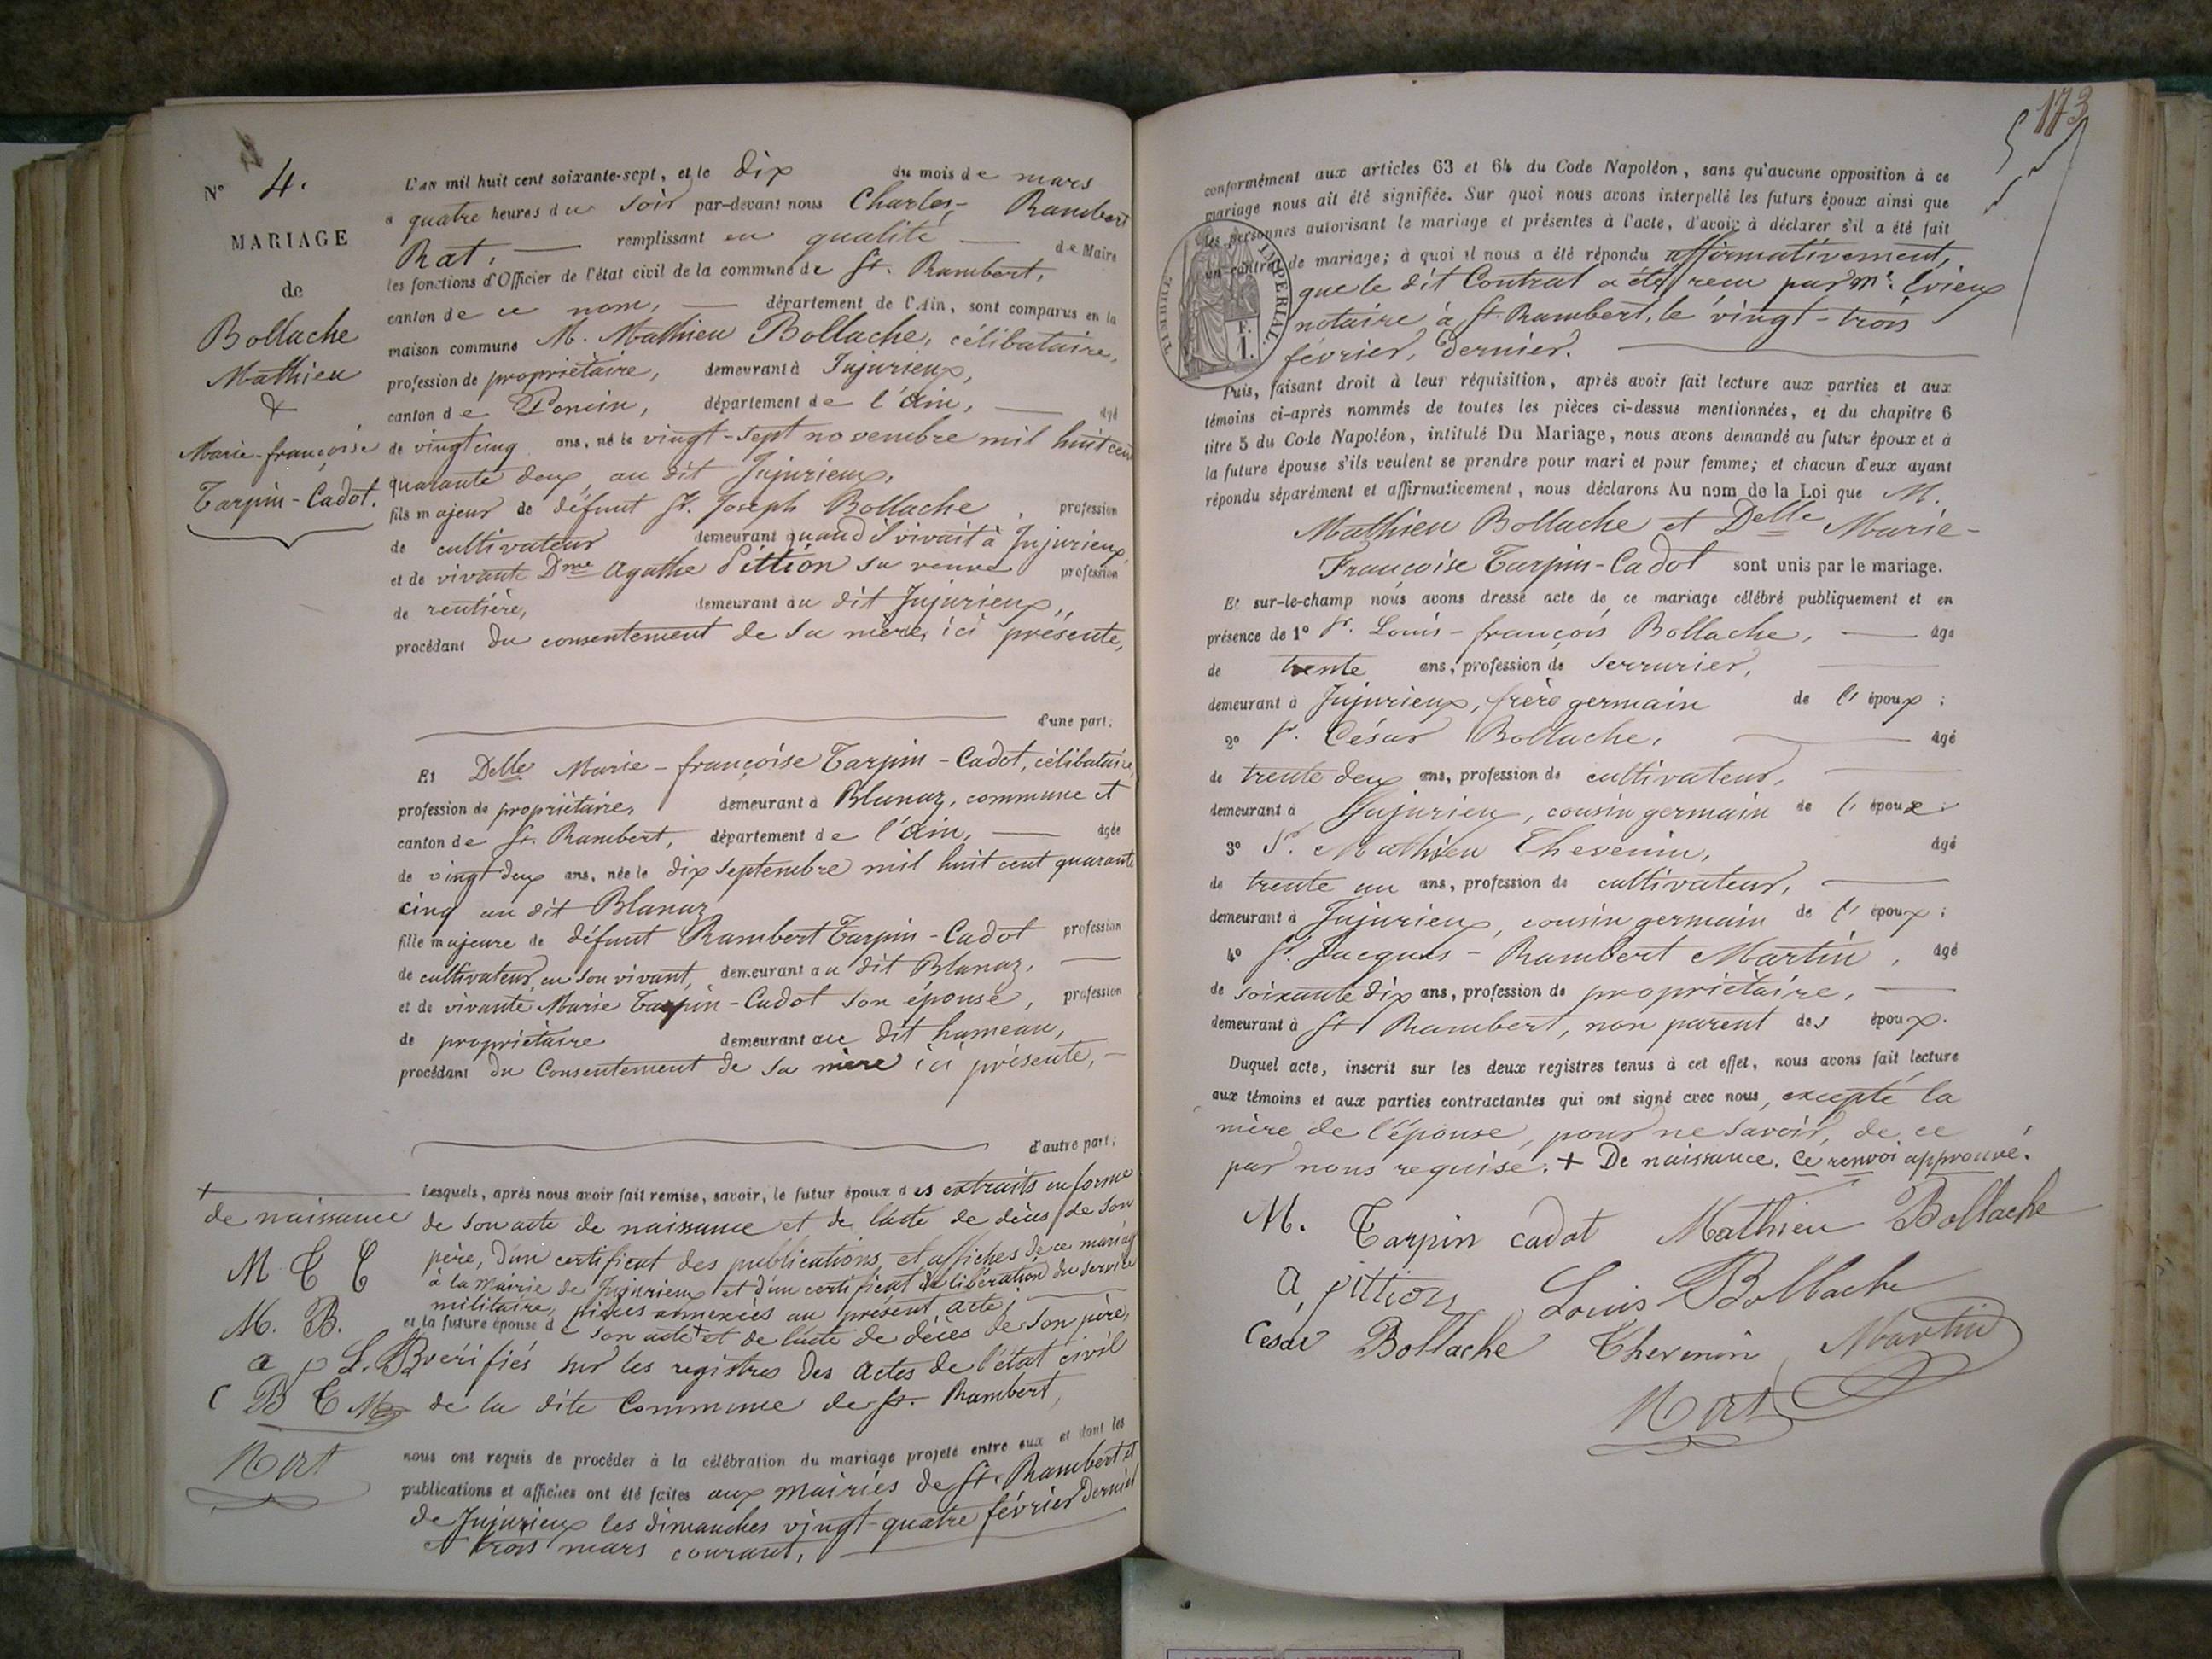 N° 4.
MARIAGE
de
Bollache
Mathieu
&
Marie-françoise
Tarpin-Cadot.
L'AN mil huit cent soixante-sept, et le dix du mois de mars
à quatre heures du soir par-devant nous Charles-Rambert
Rat, remplissant en qualité de Maire
les fonctions d'Officier de l'état civil de la commune de St. Rambert,
canton de ce nom, département de l'Ain, sont comparus en la
maison commune M. Mathieu Bollache, célibataire,
profession de propriétaire, demeurant à Jujurieux,
canton de Poncin, département de l'ain, âgé
de vingt cinq ans, né le vingt-sept novembre mil huit cent
quarante deux, au dit Jujurieux,
fils majeur de défunt Sr. Joseph Bollache, profession
de cultivateur demeurant quand il vivait à Jujurieux
et de vivante Dme Agathe Pittion sa veuve profession
de rentière, demeurant au dit Jujurieux,,
procédant du consentement de sa mère, ici présente,
d'une part;
Et Delle Marie-françoise Tarpin-Cadot, célibataire,
profession de propriétaire, demeurant à Blanaz, commune et
canton de St. Rambert, département de l'ain, âgée
de vingt deux ans, née le dix septembre mil huit cent quarante
cinq au dit Blanaz
fille majeure de défunt Rambert Tarpin-Cadot profession
de cultivateur, en son vivant, demeurant au dit Blanaz,
et de vivante Marie Tarpin-Cadot son épouse, profession
de propriétaire demeurant au dit hameau,
procédant du Consentement de sa mère ici présente,
d'autre part;
Lesquels, après nous avoir fait remise, savoir, le futur époux des extraits en forme
de son acte de naissance et de l'acte de décès de son
père, d'un certificat des publications et affiches de ce mariage
à la Mairie de Jujurieux et d'un certificat de libération du service
militaire, pièces annexées au présent acte;
et la future épouse de son acte + et de l'acte de décès de son père,
vérifiés sur les registres des actes de l'état civil
de la dite Commune de St. Rambert,
nous ont requis de procéder à la célébration du mariage projeté entre eux et dont les
publications et affiches ont été faites aux mairies de St. Rambert et
de Jujurieux les dimanches vingt-quatre février dernier
et trois mars courant,
+
de naissance
M T C
M. B.
a p L. B
C B T M
Rat
173
conformément aux articles 63 et 64 du Code Napoléon, sans qu'aucune opposition à ce
mariage nous ait été signifiée. Sur quoi nous avons interpellé les futurs époux ainsi que
les personnes autorisant le mariage et présentes à l'acte, d'avoir à déclarer s'il a été fait
un contrat de mariage; à quoi il nous a été répondu affirmativement,
que le dit Contrat a été reçu par Me. Evieux
notaire à St. Rambert, le vingt-trois
février, dernier.
TIMBRE IMPÉRIAL
F.
1.
Puis, faisant droit à leur réquisition, après avoir fait lecture aux parties et aux
témoins ci-après nommés de toutes les pièces ci-dessus mentionnées, et du chapitre 6
titre 5 du Code Napoléon, intitulé Du Mariage, nous avons demandé au futur époux et à
la future épouse s'ils veulent se prendre pour mari et pour femme; et chacun d'eux ayant
répondu séparément et affirmativement, nous déclarons Au nom de la Loi que M.
Mathieu Bollache et Delle Marie-
Françoise Tarpin-Cadot sont unis par le mariage.
Et sur-le-champ nous avons dressé acte de ce mariage célébré publiquement et en
présence de 1° Sr. Louis-françois Bollache, âgé
de trente ans, profession de serrurier,
demeurant à Jujurieux, frère germain de l' époux;
2° Sr. César Bollache, âgé
de trente deux ans, profession de cultivateur,
demeurant à Jujurieux, cousin germain de l' époux;
3° Sr. Mathieu Thevenin, âgé
de trente un ans, profession de cultivateur,
demeurant à Jujurieux, cousin germain de l' époux;
4° Sr. Jacques-Rambert Martin, âgé
de soixante dix ans, profession de propriétaire,
demeurant à St Rambert, non parent des époux.
Duquel acte, inscrit sur les deux registres tenus à cet effet, nous avons fait lecture
aux témoins et aux parties contractantes qui ont signé avec nous, excepté la
mère de l'épouse, pour ne savoir, de ce
par nous requise. + De naissance. Ce renvoi approuvé.
M. Tarpin cadot Mathieu Bollache
a, pittion Louis Bollache
Cesar Bollache Thevenin Martin
Rat